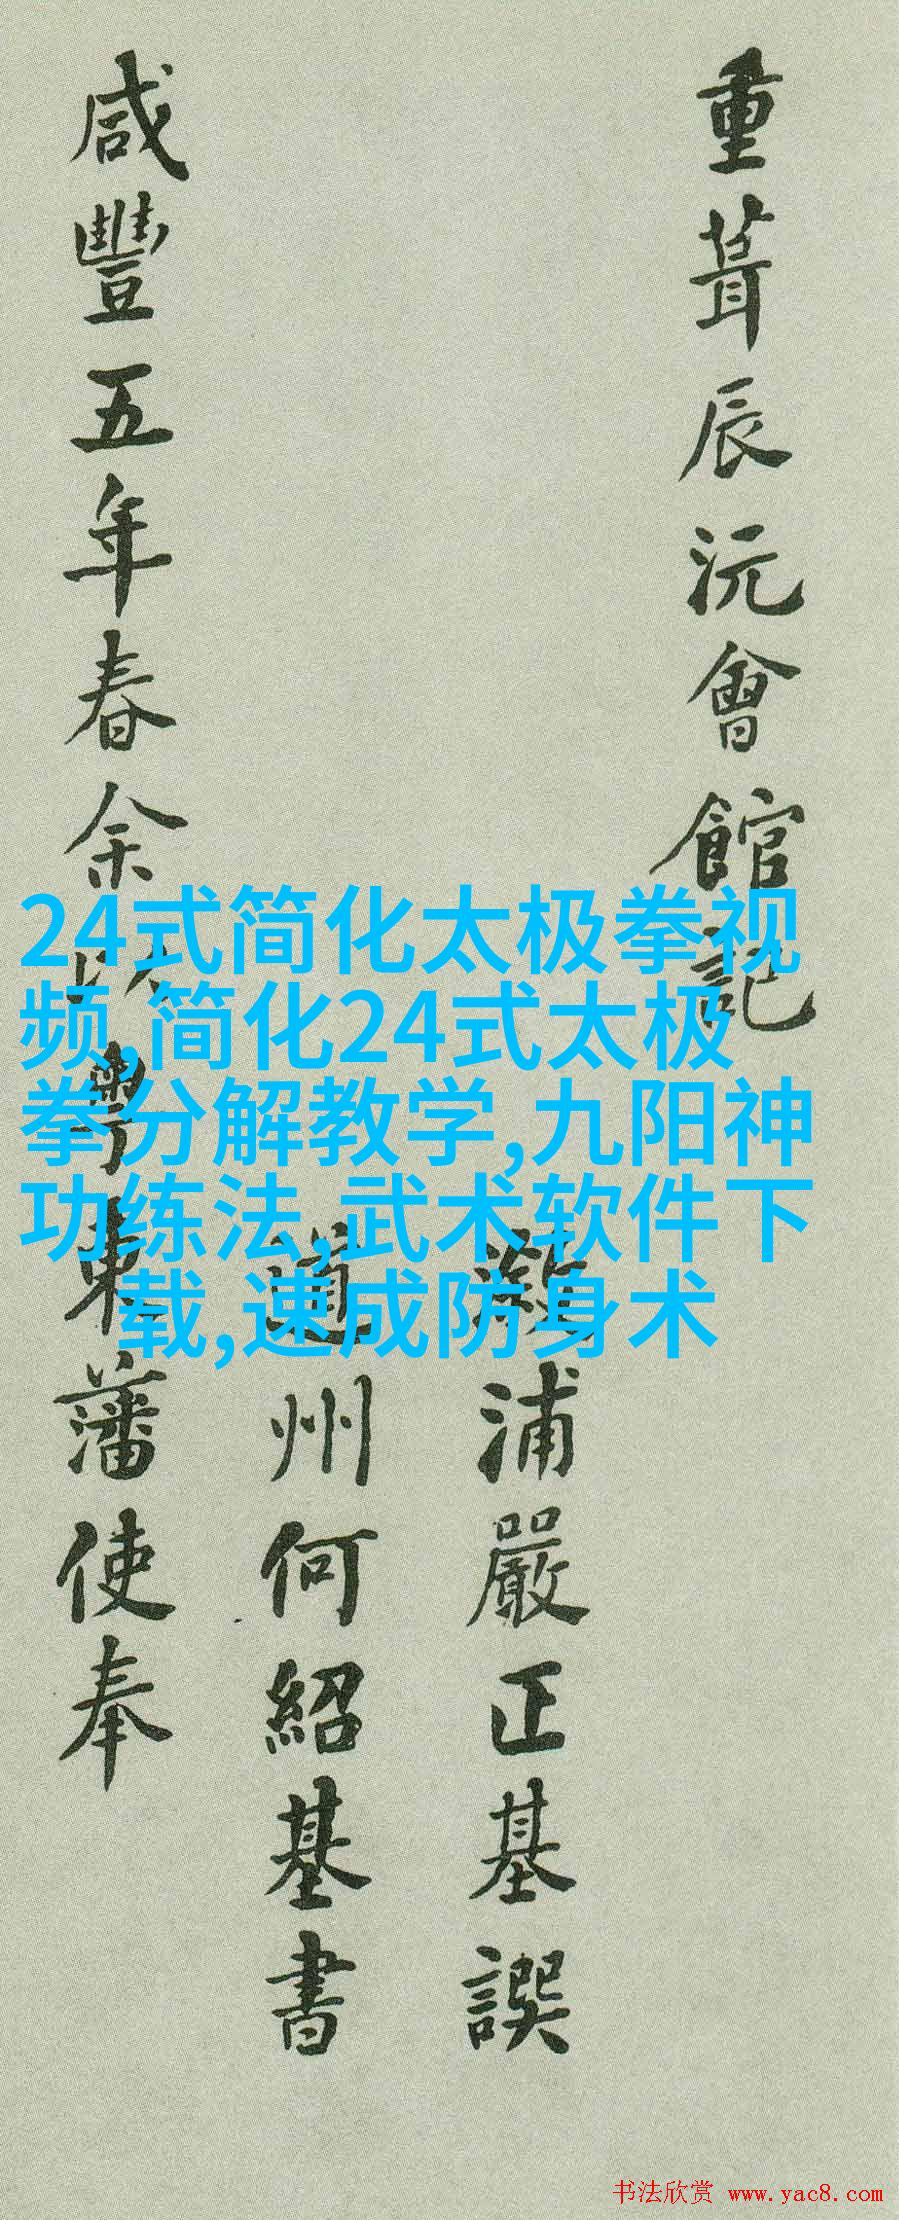 重葺辰沅會館記
漵浦嚴正基譔
道州何紹基書
咸豐五年春余以粵東藩使奉
24式简化太极拳视
频,简化24式太极
拳分解教学,九阳神
功练法,武术软件下
载,速成防身术
书法欣赏 www.yac8.com